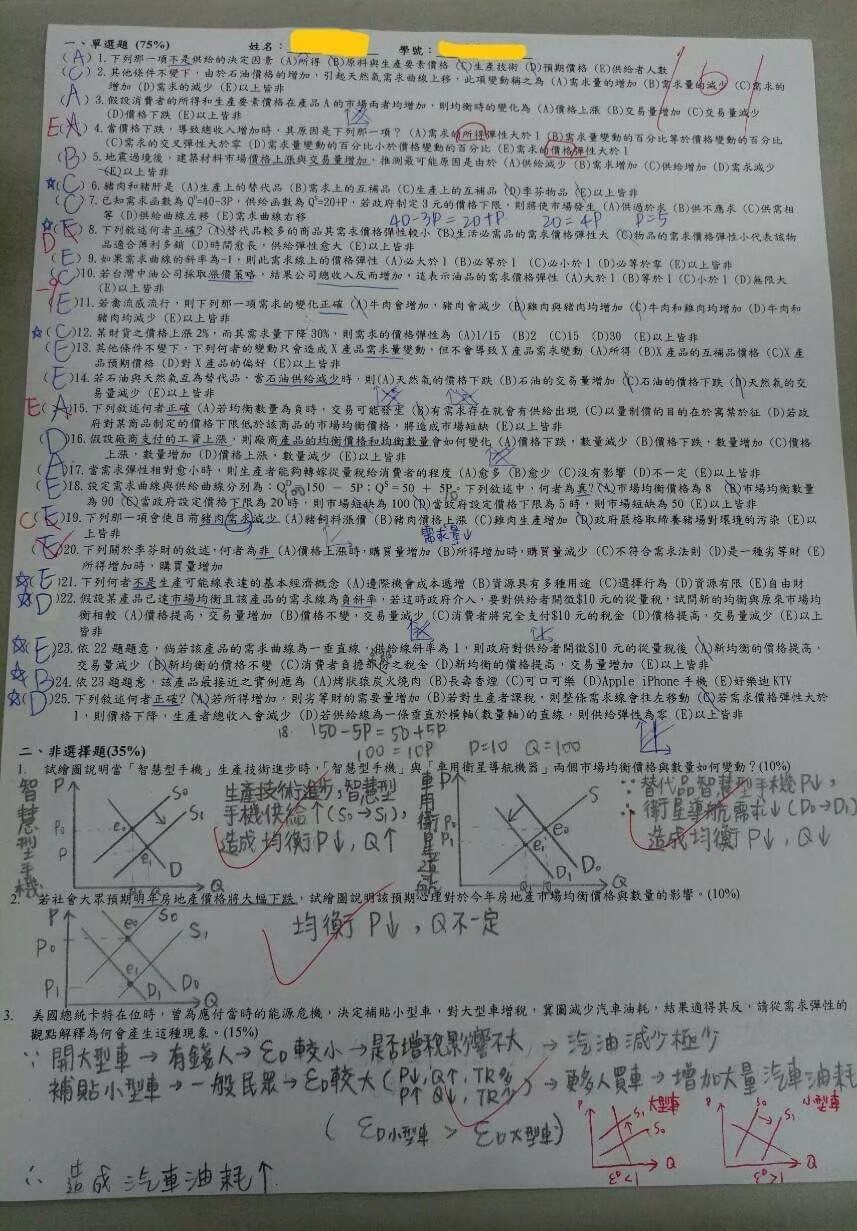 一、單選題 (75%) 姓名： 學號：
(A) 1. 下列那一項不是供給的決定因素 (A)所得 (B)原料與生產要素價格 (C)生產技術 (D)預期價格 (E)供給者人數
(C) 2. 其他條件不變下，由於石油價格的增加，引起天然氣需求曲線上移，此項變動稱之為 (A)需求量的增加 (B)需求量的減少 (C)需求的
增加 (D)需求的減少 (E)以上皆非
(A) 3. 假設消費者的所得和生產要素價格在產品A的市場兩者均增加，則均衡時的變化為 (A)價格上漲 (B)交易量增加 (C)交易量減少
(D)價格下跌 (E)以上皆非
E(A) 4. 當價格下跌，導致總收入增加時，其原因是下列那一項？ (A)需求的所得彈性大於1 (B)需求量變動的百分比等於價格變動的百分比
(C)需求的交叉彈性大於零 (D)需求量變動的百分比小於價格變動的百分比 (E)需求的價格彈性大於1
(B) 5. 地震過境後，建築材料市場價格上漲與交易量增加，推測最可能原因是由於 (A)供給減少 (B)需求增加 (C)供給增加 (D)需求減少
(E)以上皆非
☆(C) 6. 豬肉和豬肝是 (A)生產上的替代品 (B)需求上的互補品 (C)生產上的互補品 (D)季芬物品 (E)以上皆非
(C) 7. 已知需求函數為 Qᴰ=40-3P，供給函數為 Qˢ=20+P，若政府制定3元的價格下限，則將使市場發生 (A)供過於求 (B)供不應求 (C)供需相
等 (D)供給曲線左移 (E)需求曲線右移 40-3P=20+P 20=4P P=5
☆D(E) 8. 下列敘述何者正確？(A)替代品較多的商品其需求價格彈性較小 (B)生活必需品的需求價格彈性大 (C)物品的需求價格彈性小代表該物
品適合薄利多銷 (D)時間愈長，供給彈性愈大 (E)以上皆非
(E) 9. 如果需求曲線的斜率為-1，則此需求線上的價格彈性 (A)必大於1 (B)必等於1 (C)必小於1 (D)必等於零 (E)以上皆非
(C)10. 若台灣中油公司採取漲價策略，結果公司總收入反而增加，這表示油品的需求價格彈性 (A)大於1 (B)等於1 (C)小於1 (D)無限大
(E)以上皆非
-9
(E)11. 若禽流感流行，則下列那一項需求的變化正確 (A)牛肉會增加，豬肉會減少 (B)雞肉與豬肉均增加 (C)牛肉和雞肉均增加 (D)牛肉和
豬肉均減少 (E)以上皆非
☆(C)12. 某財貨之價格上漲2%，而其需求量下降30%，則需求的價格彈性為 (A)1/15 (B)2 (C)15 (D)30 (E)以上皆非
(E)13. 其他條件不變下，下列何者的變動只會造成X產品需求量變動，但不會導致X產品需求變動 (A)所得 (B)X產品的互補品價格 (C)X產
品預期價格 (D)對X產品的偏好 (E)以上皆非
(E)14. 若石油與天然氣互為替代品，當石油供給減少時，則(A)天然氣的價格下跌 (B)石油的交易量增加 (C)石油的價格下跌 (D)天然氣的交
易量減少 (E)以上皆非
E(A)15. 下列敘述何者正確 (A)若均衡數量為負時，交易可能發生 (B)有需求存在就會有供給出現 (C)以量制價的目的在於寓禁於征 (D)若政
府對某商品制定的價格下限低於該商品的市場均衡價格，將造成市場短缺 (E)以上皆非
(D)16. 假設廠商支付的工資上漲，則廠商產品的均衡價格和均衡數量會如何變化 (A)價格下跌，數量減少 (B)價格下跌，數量增加 (C)價格
上漲，數量增加 (D)價格上漲，數量減少 (E)以上皆非
(A)17. 當需求彈性相對愈小時，則生產者能夠轉嫁從量稅給消費者的程度 (A)愈多 (B)愈少 (C)沒有影響 (D)不一定 (E)以上皆非
(E)18. 設定需求曲線與供給曲線分別為：Qᴰ=150 - 5P；Qˢ = 50 + 5P。下列敘述中，何者為真？(A)市場均衡價格為8 (B)市場均衡數量
為90 (C)當政府設定價格下限為20時，則市場短缺為100 (D)當政府設定價格下限為5時，則市場短缺為50 (E)以上皆非
C(E)19. 下列那一項會使目前豬肉需求減少 (A)豬飼料漲價 (B)豬肉價格上漲 (C)雞肉生產增加 (D)政府嚴格取締養豬場對環境的污染 (E)以
上皆非 需求量↓
(E)20. 下列關於季芬財的敘述，何者為非 (A)價格上漲時，購買量增加 (B)所得增加時，購買量減少 (C)不符合需求法則 (D)是一種劣等財 (E)
所得增加時，購買量增加
☆(E)21. 下列何者不是生產可能線表達的基本經濟概念 (A)邊際機會成本遞增 (B)資源具有多種用途 (C)選擇行為 (D)資源有限 (E)自由財
☆(D)22. 假設某產品已達市場均衡且該產品的需求線為負斜率，若這時政府介入，要對供給者開徵$10元的從量稅，試問新的均衡與原來市場均
衡相較 (A)價格提高，交易量增加 (B)價格不變，交易量減少 (C)消費者將完全支付$10元的稅金 (D)價格提高，交易量減少 (E)以上
皆非
☆(E)23. 依22題題意，倘若該產品的需求曲線為一垂直線，供給線斜率為1，則政府對供給者開徵$10元的從量稅後 (A)新均衡的價格提高，
交易量減少 (B)新均衡的價格不變 (C)消費者負擔部份之稅金 (D)新均衡的價格提高，交易量增加 (E)以上皆非
☆(B)24. 依23題題意，該產品最接近之實例應為 (A)烤狀猿炭火燒肉 (B)長壽香煙 (C)可口可樂 (D)Apple iPhone手機 (E)好樂迪KTV
☆(D)25. 下列敘述何者正確？(A)若所得增加，則劣等財的需要量增加 (B)若對生產者課稅，則整條需求線會往左移動 (C)若需求價格彈性大於
1，則價格下降，生產者總收入會減少 (D)若供給線為一條垂直於橫軸(數量軸)的直線，則供給彈性為零 (E)以上皆非
18. 150-5P=50+5P
100=10P P=10 Q=100
二、非選擇題(35%)
1. 試繪圖說明當「智慧型手機」生產技術進步時，「智慧型手機」與「車用衛星導航機器」兩個市場均衡價格與數量如何變動？(10%)
智慧型手機 P S₀ S₁ P₀ P e₀ e₁ D Q
生產技術進步，智慧型
手機供給↑(S₀→S₁)，
造成均衡P↓，Q↑
車用衛星導航 P S P₀ P₁ e₀ e₁ D₁ D₀ Q₁ Q₀ Q
∵替代品智慧型手機P↓，
∴衛星導航需求↓(D₀→D₁)
造成均衡P↓，Q↓
2. 若社會大眾預期明年房地產價格將大幅下跌，試繪圖說明該預期心理對於今年房地產市場均衡價格與數量的影響。(10%)
P S₀ S₁ P₀ P₁ e₀ e₁ D₁ D₀ Q
均衡P↓，Q不一定
3. 美國總統卡特在位時，曾為應付當時的能源危機，決定補貼小型車，對大型車增稅，冀圖減少汽車油耗，結果適得其反，請從需求彈性的
觀點解釋為何會產生這種現象。(15%)
∵開大型車→有錢人→εD較小→是否增稅影響不大→汽油減少極少
補貼小型車→一般民眾→εD較大(P↓，Q↑，TR↑
P↑ Q↓，TR↓)→更多人買車→增加大量汽車油耗
(εD小型車 > εD大型車)
P S₁ 大型車 S₀ Q εᴰ<1
P S₀ 小型車 S₁ Q εᴰ>1
∴造成汽車油耗↑